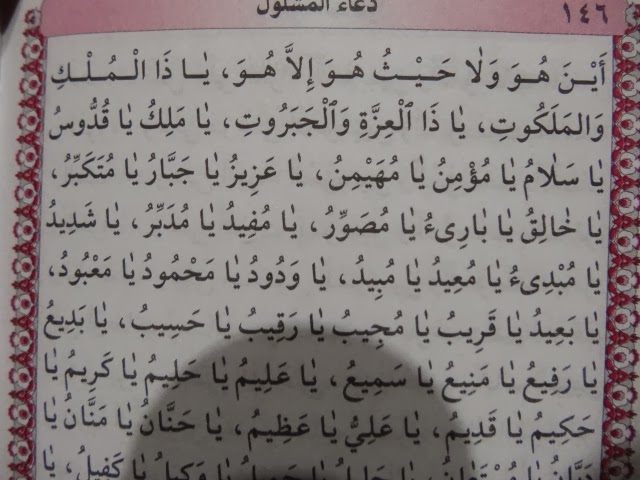 دعاء المشلول
١٤٦
أَيْـنَ هُـوَ وَلٰا حَـيْـثُ هُـوَ إِلاَّ هُـوَ، يٰـا ذَا الْـمُـلْـكِ
وَالمَلَكُوتِ، يٰا ذَا ٱلْعِزَّةِ وَٱلْجَبَرُوتِ، يٰا مَلِكُ يٰا قُدُّوسُ
يٰا سَلٰامُ يٰا مُؤْمِنُ يٰا مُهَيْمِنُ، يٰا عَزِيزُ يٰا جَبَّارُ يٰا مُتَكَبِّرُ،
يٰا خٰالِقُ يٰا بٰارِىءُ يٰا مُصَوِّرُ، يٰا مُفِيدُ يٰا مُدَبِّرُ، يٰا شَدِيدُ
يٰا مُبْدِىءُ يٰا مُعِيدُ يٰا مُبِيدُ، يٰا وَدُودُ يٰا مَحْمُودُ يٰا مَعْبُودُ،
يٰا بَعِيدُ يٰا قَرِيبُ يٰا مُجِيبُ يٰا رَقِيبُ يٰا حَسِيبُ، يٰا بَدِيعُ
يٰا رَفِيعُ يٰا مَنِيعُ يٰا سَمِيعُ، يٰا عَلِيمُ يٰا حَلِيمُ يٰا كَرِيمُ يٰا
حَكِيمُ يٰا قَدِيمُ، يٰا عَلِيُّ يٰا عَظِيمُ، يٰا حَنَّانُ يٰا مَنَّانُ يٰا
دَيَّانُ يٰا مُسْتَعٰانُ، يٰا جَلِيلُ يٰا جَمِيلُ يٰا وَكِيلُ يٰا كَفِيلُ، يٰا